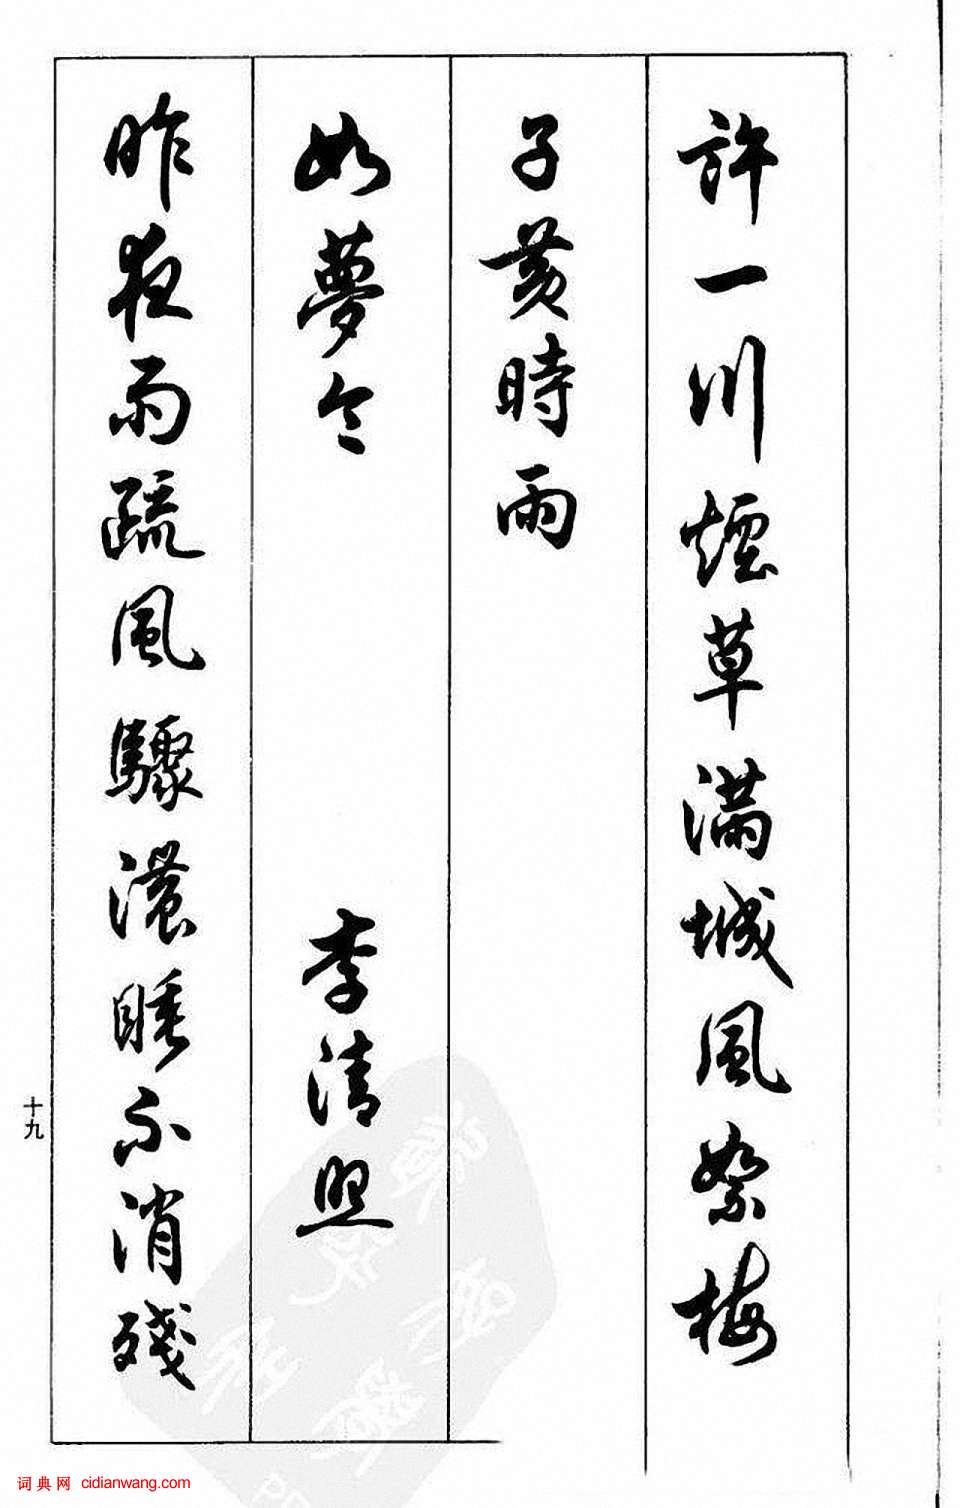 許一川煙草滿城風絮梅
子黄時雨
如夢令 李清照
昨夜雨疏風驟濃睡不消殘
十九
词典网 cidianwang.com